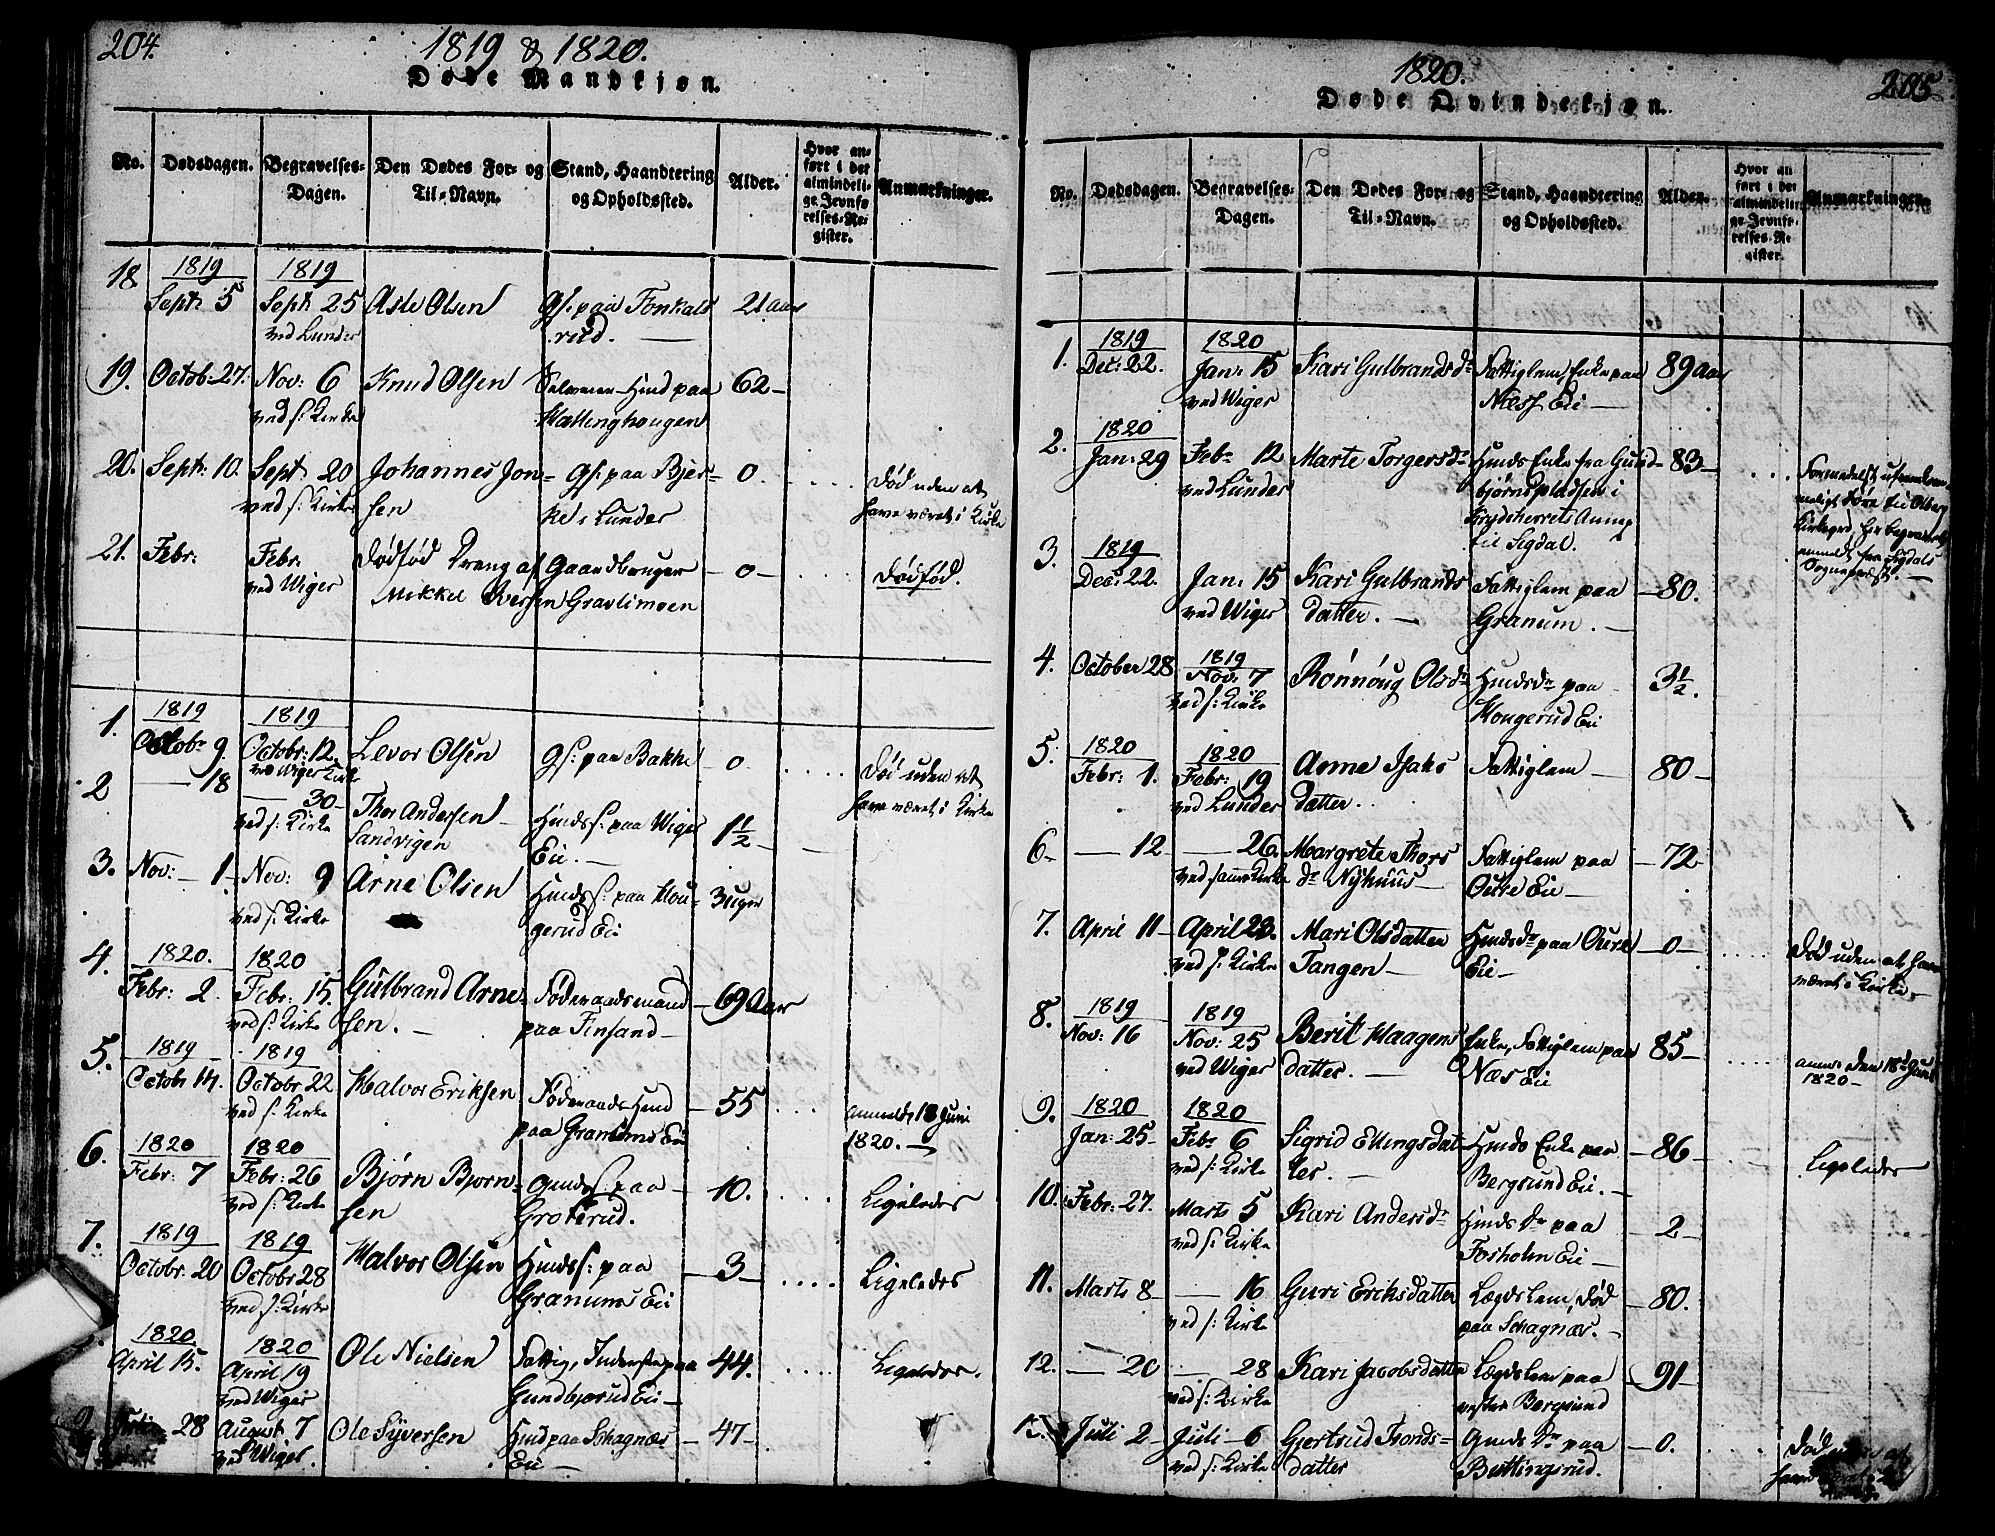 204.
1819 & 1820.
Døde Mandkjøn.
No. Dødsdagen. Begravelses-Dagen. Den Dødes For- og Til-Navn. Stand, Haandtering og Opholdssted. Alder. Hvor anført i det almindelige Jevnførelses-Register. Anmærkninger.
18 1819 Sept: 5 1819 Sept: 25 ved Lunder Asle Olsen Gs. paa Fonkalsrud. 21 aar
19. Octob: 27. Nov: 6 ved s: Kirke Knud Olsen Selveier-Hmd paa Hattinghougen 62
20. Sept: 10. Sept: 20 ved s: Kirke Johannes Jonsen Gs: paa Bjerke i Lunder 0. Død uden at have været i Kirke
21. Febr: Febr: ved Wiger Dødfød Dreng af Mikkel Iversen Gaardbruger Gravlimoen 0 Dødfød.
1. 1819 Octobr 9. 1819 Octobr: 12 ved Wiger Kirk Levor Olsen Gs: paa Bakke 0 Død uden at have været i Kirke
2 — 18 — 30 ved s: Kirke Thor Andersen Sandvigen Hmds s: paa Wiger Eie. 1½
3. Nov: 1 Nov: 9 ved s: Kirke Arne Olsen Hmds s: paa Hougerud Eie 3 uger
4. 1820. Febr: 2. 1820 Febr: 15. ved s: Kirke Gulbrand Arnesen. Føderaadsmand paa Finsand 69 Aar
5. 1819 Octobr 14. 1819 Octobr 22 ved s: Kirke Halvor Eriksen Føderaads Hmd paa Granums Eie 55 anmeldt 18 Juni 1820.
6. 1820 Febr: 7 1820 Febr: 26 ved s: Kirke Bjørn Bjørnsen Gmds s: paa Groterud. 10. Ligeledes
7. 1819 Octobr: 20 1819 Octobr 28 ved s: Kirke Halvor Olsen Hmds s: paa Granums Eie 3 Ligeledes
1820. April 15. 1820 April 19 ved Wiger Ole Nielsen Fattig, Inderste paa Gundbjørud Eie 44. Ligeledes.
9. 28 August 7 ved Wiger. Ole Syversen Hmd paa Schagnæs Eie 47
1820.
205
Døde Qvindekjøn.
No. Dødsdagen. Begravelses-Dagen. Den Dødes For- og Til-Navn. Stand, Haandtering og Opholdssted. Alder. Hvor anført i det almindelige Jevnførelses-Register. Anmærkninger.
1. 1819 Dec: 22. 1820 Jan: 15 ved Wiger Kari Gulbrandsdr Fattiglem, Enke paa Næss Eie 89 Aar
2. 1820 Jan: 29 Febr 12 ved Lunder Marte Torgersdr Hmds Enke fra Gulbjørnspladsen i Krydsherrets Annex til Sigdal. 83 Formedelst ufremkommeligt Føre til Olberg Kirkegrd, her begravet anmeldt fra Sigdals Sognepræst.
3. 1819 Dec: 22. Jan: 15 ved Wiger Kari Gulbrandsdatter. Fattiglem paa Granum. 80.
4. October 28 1819 Nov: 7 ved s: Kirke Rønnoug Olsdr Hmdsdr paa Hougerud Eie 3½.
5. 1820 Febr: 1. 1820 Febr: 19 ved Lunder Anne Isaksdatter. Fattiglem 80
6 — 12 — 26. ved samme Kirke Margrete Thorsdr Nyhuus Fattiglem paa Oure Eie 72
7. April 11 April 23. ved s: Kirke Mari Olsdatter Tangen Hmdsdr paa Oure Eie 0 Død uden at have været i Kirke.
8. 1819 Nov: 16 1819 Nov: 25 ved Wiger Berit Haagensdatter. Enke, Fattiglem paa Næs Eie 85 anm: den 18de Juni 1820
9. 1820 Jan: 25 1820 Febr 6 ved s: Kirke Sigrid Ellingsdatter. Hmds Enke paa Bergsund Eie. 86 Ligeledes
10. Febr: 27. Marts 5 ved s: Kirke Kari Andersdr Hmds Dr paa Forholm Eie 2
11. Marts 8 — 16 ved s: Kirke Guri Eriksdatter Lægdslem, død paa Schagnæs. 80.
12. — 20 — 28 ved s: Kirke Kari Jacobsdatter Lægdslem paa vestre Bergsund 91
13. Juli 2 Juli 6 ved s: Kirke Gjertrud Trondsdatter Gmds Dr paa Buttingsrud. 0. Død uden at have